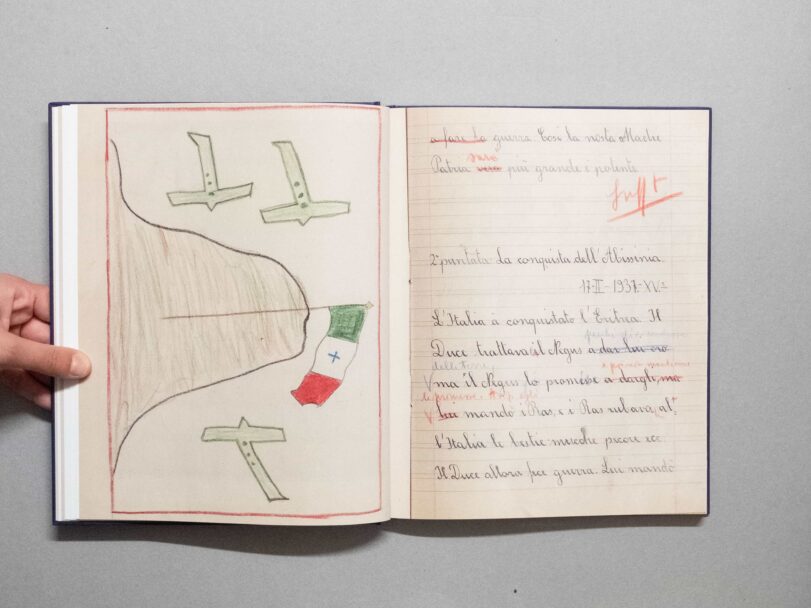 a fare la guerra. Così la nosta Madre
sarà
Patria verà più grande e potente.
Suff+
2ª puntata: La conquista dell'Abissinia.
17-II-1937-XV.
L'Italia à conquistato l'Eritrea. Il
Duce trattava il Negus a dar lui oro
delle terre
ma il Negus lo promise a dargli, ma
lui mandò i Ras, e i Ras rubava al-
l'Italia le bestie: mucche pecore ecc.
Il Duce allora fece guerra. Lui mandò